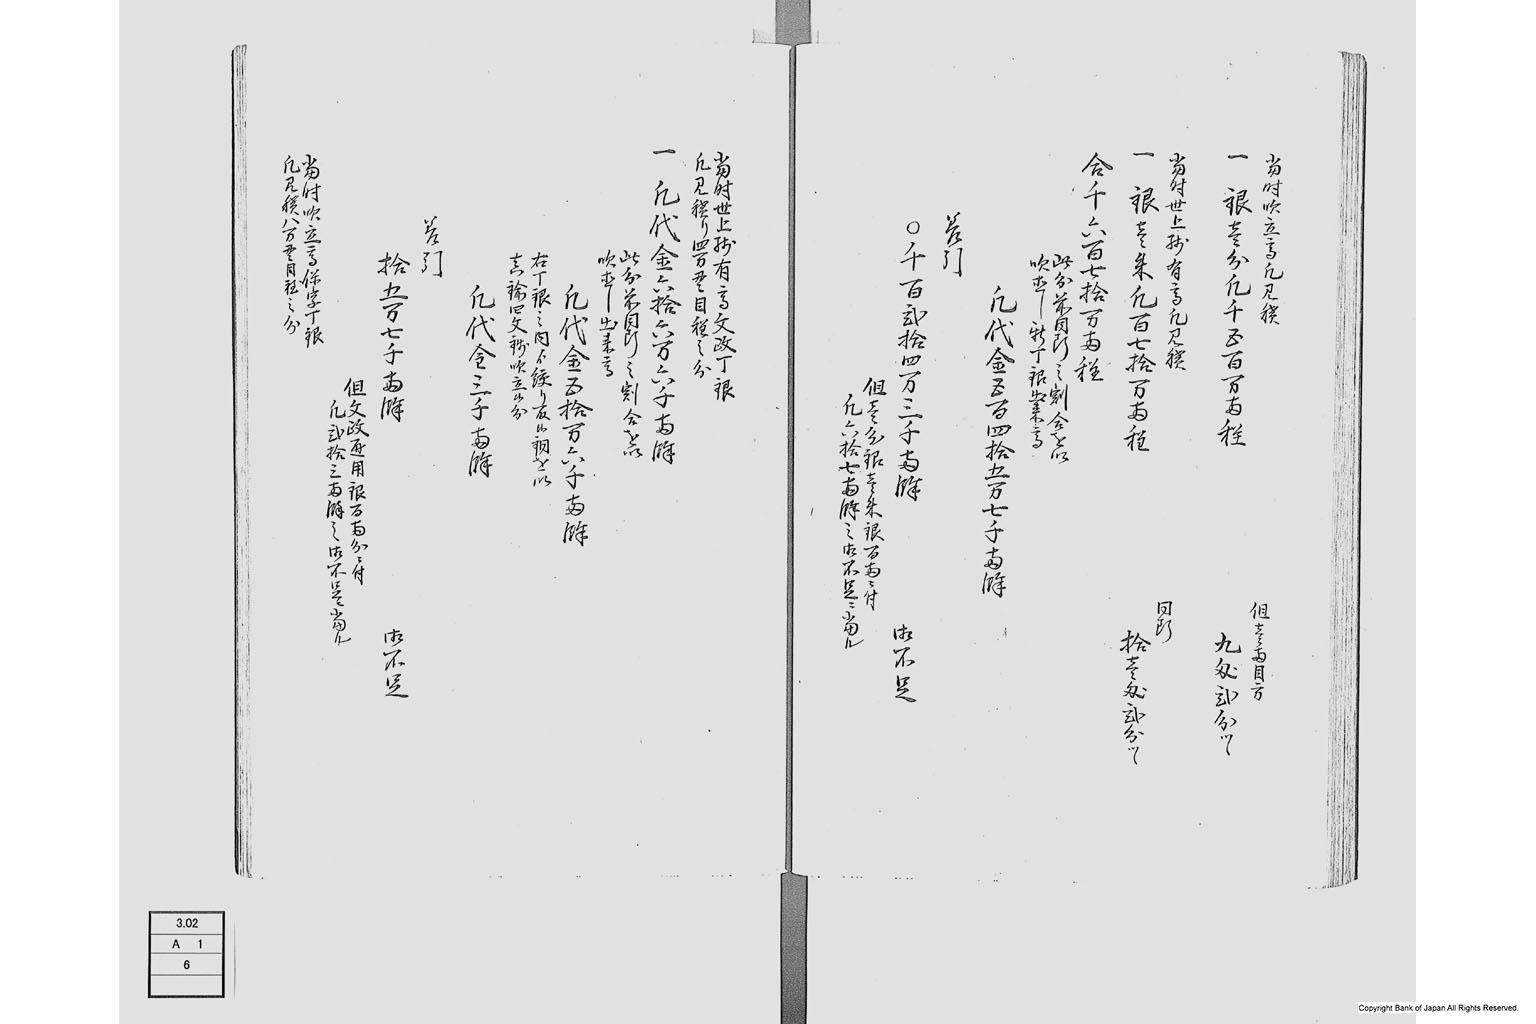 当時吹立高凡見積
一 銀壱分凡千五百万両程
但壱両目方
九匁弐分ツヽ
当時世上残有高凡見積
一 銀壱朱凡百七拾万両程
同断
拾壱匁弐分ツヽ
合千六百七拾万両程
此分前同断之割合を以
吹直し新丁銀出来高
凡代金五百四拾五万七千両余
差引
〇千百弐拾四万三千両余
御不足
但壱分銀壱朱銀百両ニ付
凡六拾七両余之御不足ニ当ル
当時世上残有高文政丁銀
凡見積り四万貫目程之分
一 凡代金六拾六万六千両余
此分前同断之割合を以
吹直し出来高
凡代金五拾万六千両余
右丁銀之内不絞り灰吹銅を以
真鍮四文銭吹立候分
凡代金三千両余
差引
拾五万七千両余
御不足
但文政通用銀百両分ニ付
凡弐拾三両余之御不足ニ当ル
当時吹立高保字丁銀
凡見積八万貫目程之分
3.02
A 1
6
Copyright Bank of Japan All Rights Reserved.